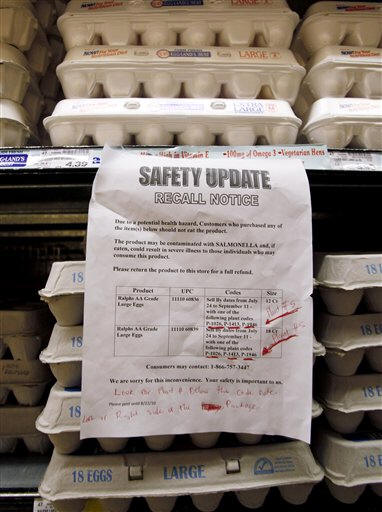 NOW! For Your Mediterranean Diet
LARGE
EGG-LAND'S BEST
LARGE
EXTRA LARGE
G-LAND'S
4.39
High in Vitamin E •100mg of Omega 3 •Vegetarian Hens
SAFETY UPDATE
RECALL NOTICE
Due to a potential health hazard, Customers who purchased any
of the item(s) below should not eat the product.
The product may be contaminated with SALMONELLA and, if
eaten, could result in severe illness to those individuals who may
consume this product.
Please return the product to this store for a full refund.
Product UPC Codes Size
Ralphs AA Grade Large Eggs 11110 60836 Sell By dates from July 24 to September 11 - with one of the following plant codes P-1026, P-1413, P-1946 12 Ct
Plant #'S
Ralphs AA Grade Large Eggs 11110 60856 Sell By dates from July 24 to September 11 - with one of the following plant codes P-1026, P-1413, P-1946 18 Ct
Plant #'S
Consumers may contact: 1-866-757-3447
We are sorry for this inconvenience. Your safety is important to us.
Look for Plant # Below the Code Date
Please post until 8/23/10
Left or Right side of the Package
18 EGGS
18 EGGS
18 EGGS
18 EGGS LARGE
18